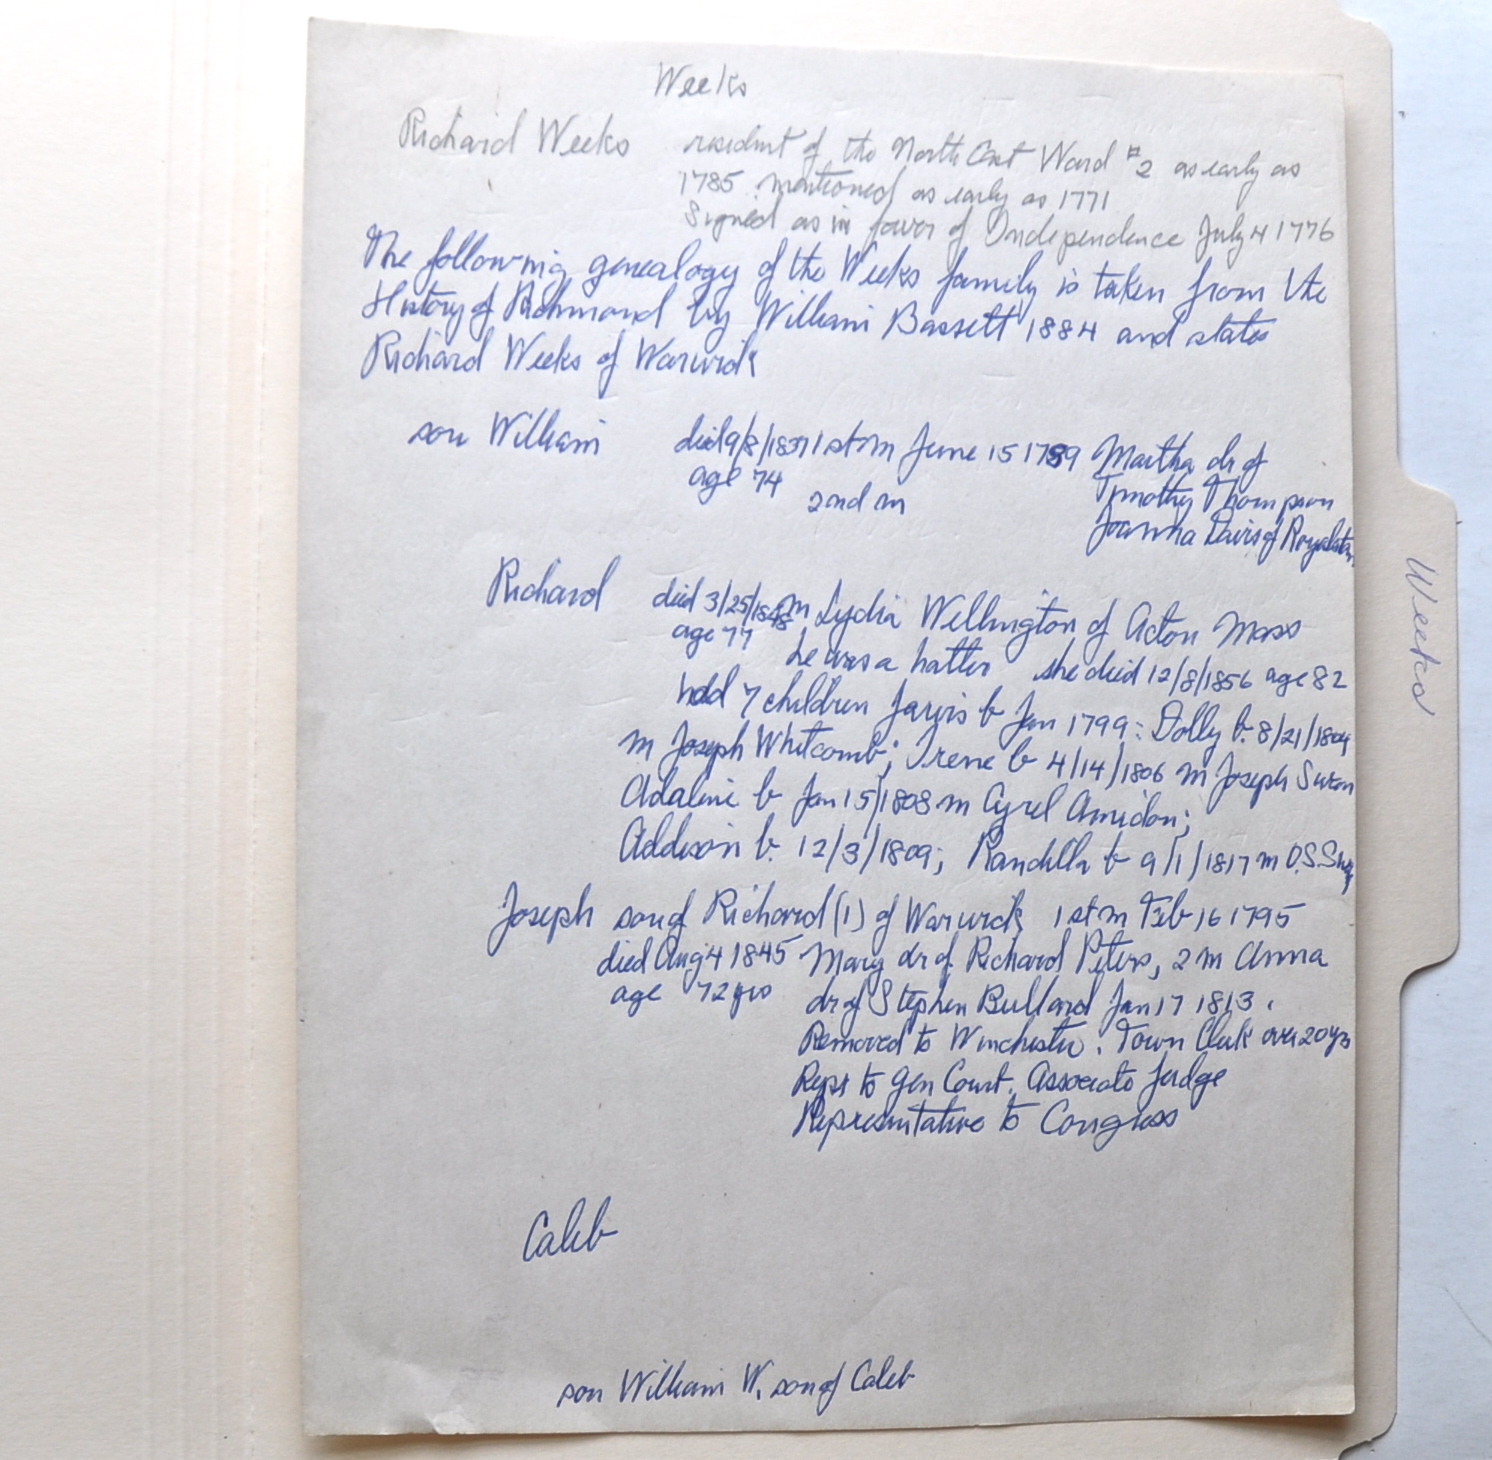 Weeks
Richard Weeks resident of the North East Ward #2 as early as
1785 mentioned as early as 1771
Signed as in favor of Independence July 4 1776
The following genealogy of the Weeks family is taken from the
History of Richmond by William Bassett 1884 and states
Richard Weeks of Warwick
son William died 9/8/1837 1st m June 15 1789 Martha dr of
age 74 Timothy Thompson
2nd m Joanna Davis of Royalston
Richard died 3/25/1848 m Lydia Wellington of Acton Mass
age 77 he was a hatter she died 12/8/1856 age 82
had 7 children Jarvis b Jan 1799: Dolly b. 8/21/1804
m Joseph Whitcomb; Irene b 4/14/1806 m Joseph Swan
Adaline b Jan 15/1808 m Cyrel Amidon;
Addison b. 12/3/1809; Randilla b 9/1/1817 m O.S.
Joseph son of Richard (1) of Warwick 1st m Feb 16 1795
died Aug 4 1845 Mary dr of Richard Peters, 2 m Anna
age 72 yrs dr of Stephen Bullard Jan 17 1813.
Removed to Winchester. Town Clerk over 20 yrs
Repr to Gen Court. Associate Judge
Representative to Congress
Caleb
son William W. son of Caleb
Weeks